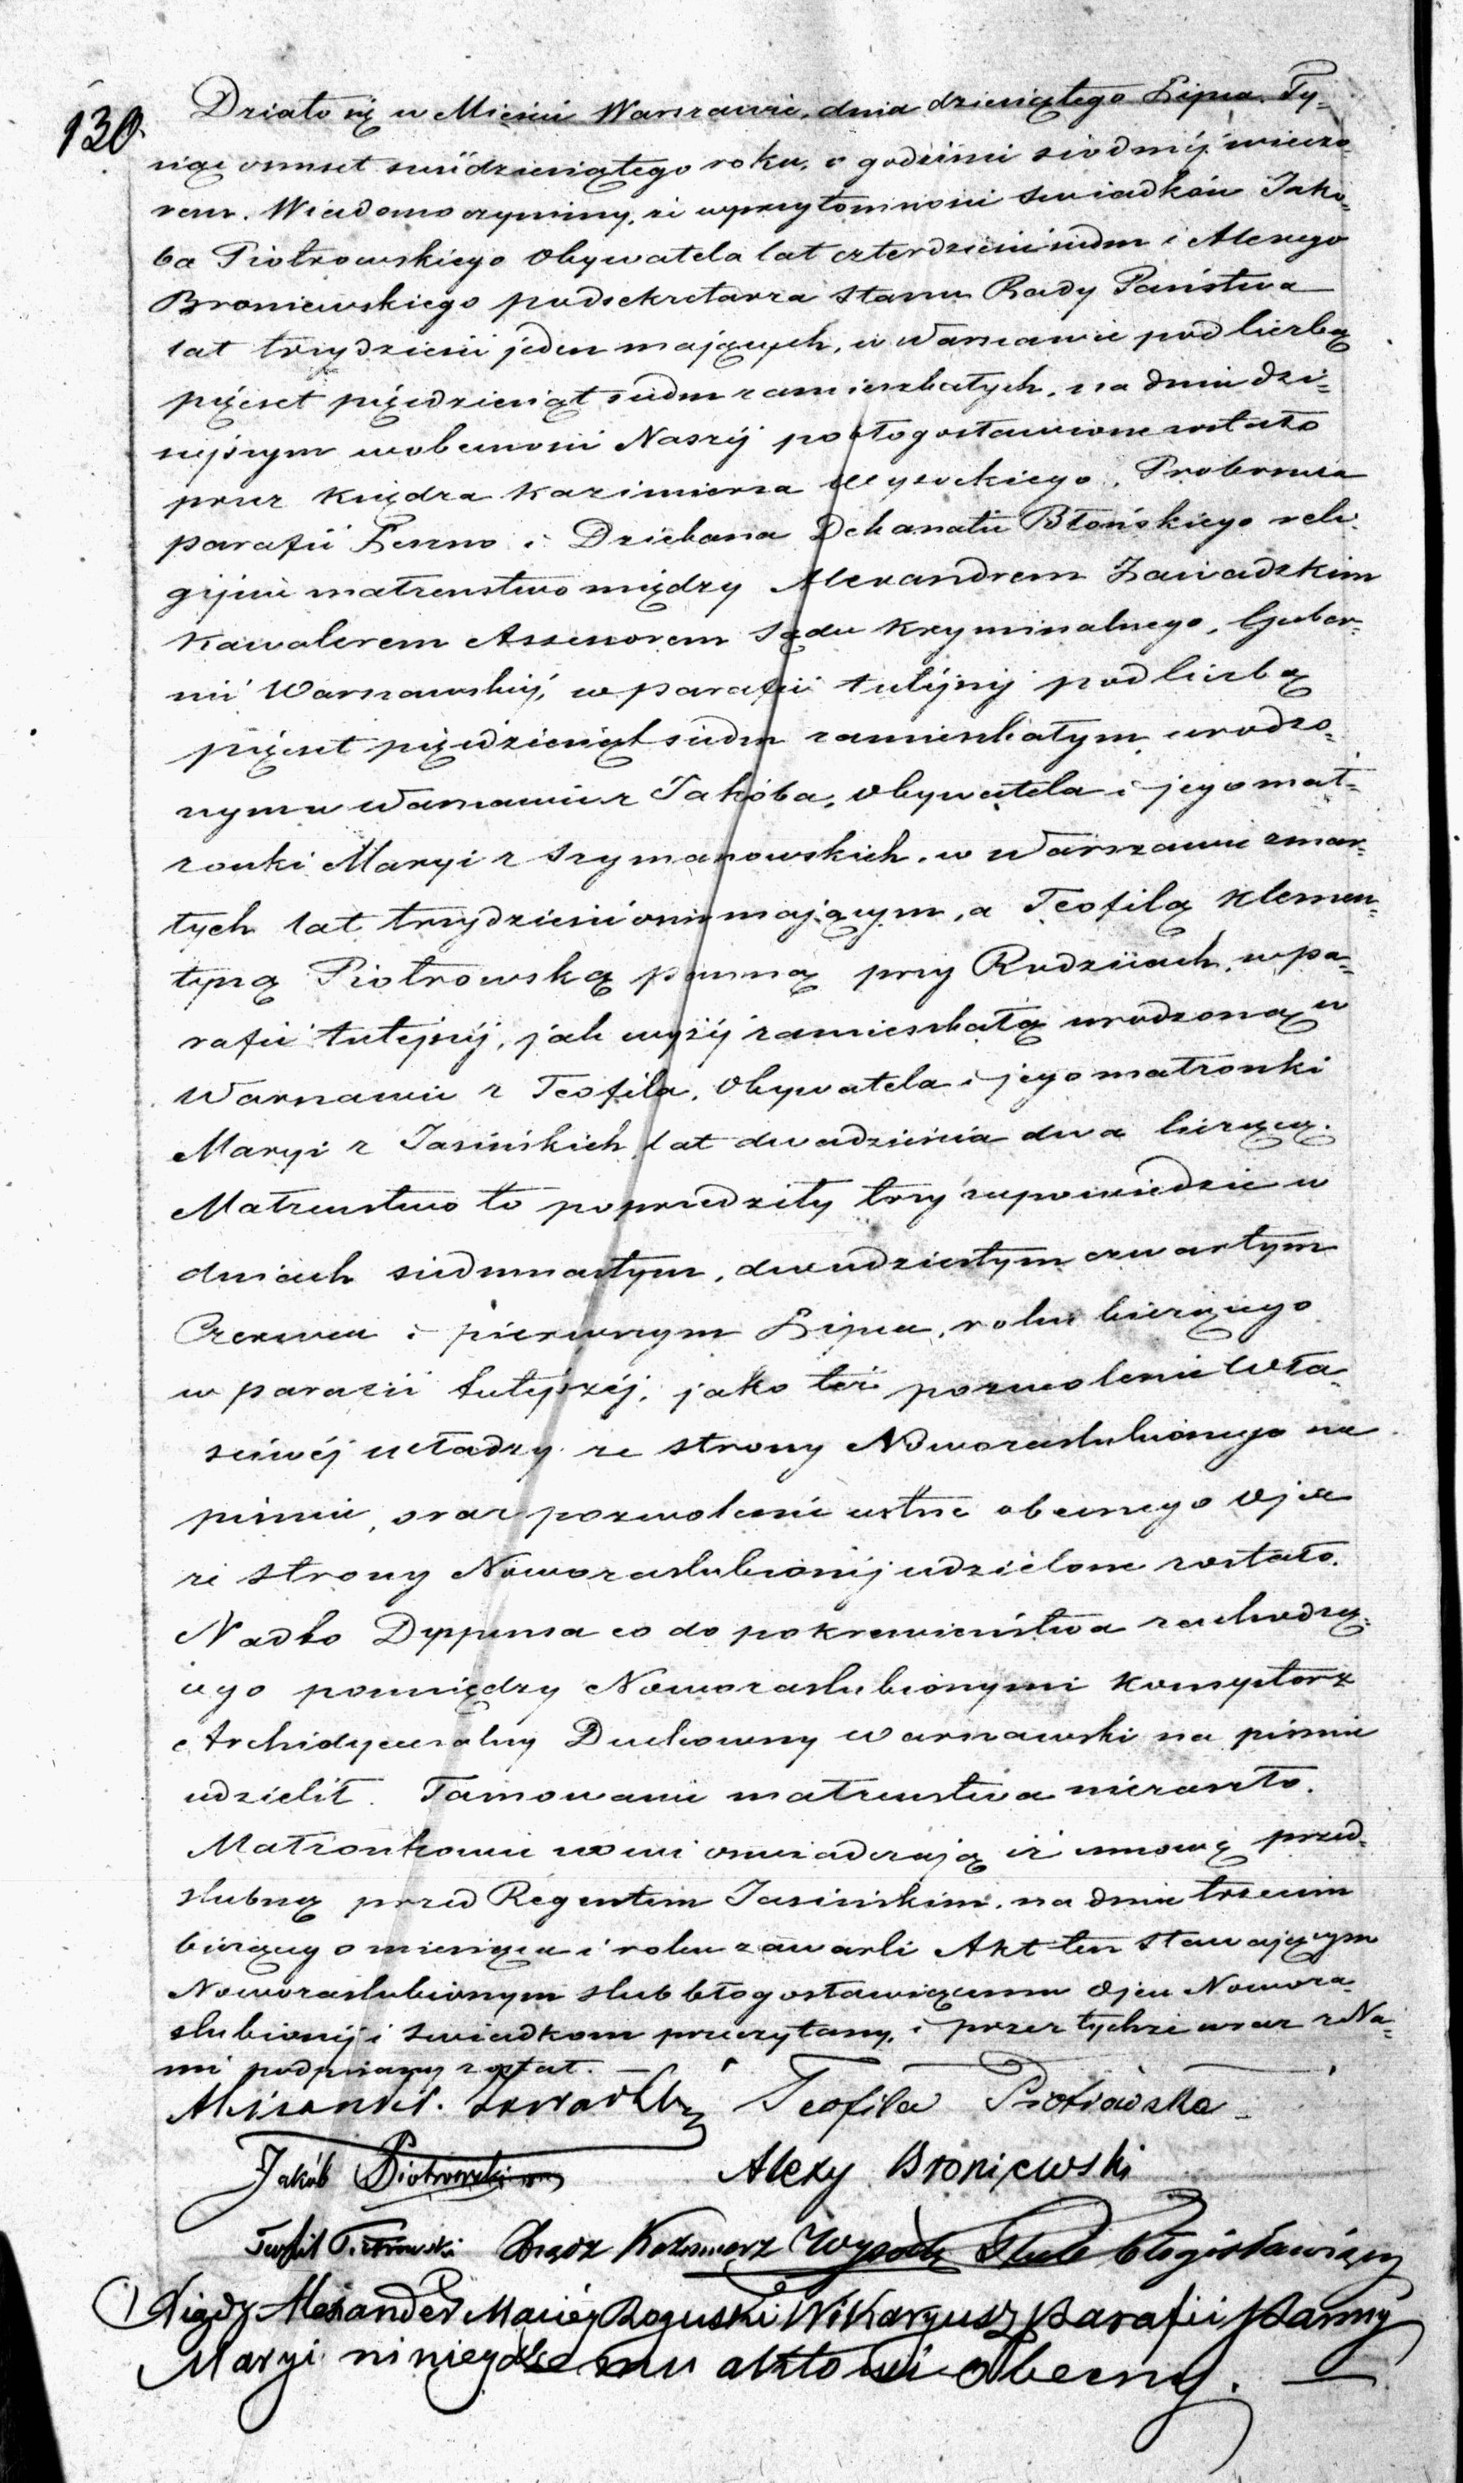 130.
Działo się w Mieście Warszawie, dnia dziesiątego Lipca, Ty-
siąc ośmset sześdziesiątego roku, o godzinie siódméj wieczo-
rem. Wiadomo czyniemy, że wprzytomności Swiadków Jakó-
ba Piotrowskiego Obywatela lat czterdzieści siedm i Alexego
Broniewskiego podsekretarza Stanu Rady Państwa
lat trzydzieści jeden mających, w Warszawie pod liczbą
pięćset pięćdziesiąt siedm zamieszkałych, na dniu dzi-
siejszym wobecności Naszéj pobłogosławione zostało
przez Księdza Kazimierza Wysockiego, Proboszcza
parafii Leszno i Dziekana Dekanatu Błońskiego reli-
gijne małżeństwo między Alexandrem Zawadzkim
Kawalerem Assessorem Sądu Kryminalnego, Guber-
nii Warszawskiéj, w parafii tutéjszéj pod liczbą
pięćset pięćdziesiąt siedm zamieszkałym, urodzo-
nym w Warszawie z Jakóba, Obywatela i jego mał-
żonki Maryi z Szymanowskich, w Warszawie zmar-
łych lat trzydzieści ośm mającym, a Teofilą Klemen-
tyną Piotrowską panną przy Rodzicach, w pa-
rafii tutejszéj, jak wyżéj zamieszkałą urodzoną w
Warszawie z Teofila, Obywatela i jego małżonki
Maryi z Jasińskich lat dwadzieścia dwa liczącą.
Małżeństwo to poprzedziły trzy zapowiedzie w
dniach siedmnastym, dwudziestym czwartym
Czerwca i pierwszym Lipca, roku bieżącego
w parafii tutejszéj, jako też pozwolenie Wła-
ściwéj władzy ze strony Nowozaślubionego na
piśmie, oraz pozwolenie ustne obecnego Ojca
ze strony Nowozaślubionéj udzielone zostało.
Nadto Dyspensa co do pokrewieństwa zachodzą-
cego pomiędzy Nowozaślubionymi Konsystorz
Archidyecezalny Duchowny Warszawski na piśmie
udzielił. Tamowanie małżeństwa niezaszło.
Małżonkowie nowi oświadczają iż umowę przed-
ślubną przed Regentem Jasińskim, na dniu trzecim
bieżącego miesiąca i roku zawarli Akt ten Stawającym
Nowozaślubionym ślub błogosławiącemu Ojcu Nowoza-
ślubionéj i Swiadkom przeczytany, i przez tychże wraz z Na-
mi podpisany został.
Alexander Zawadzki Teofila Piotrowska
Jakób Piotrowski Alexy Broniewski
Teofil Piotrowski Xiądz Kazimierz Wysocki Ślub błogosławiący
Xiądz Alexander Maciéj Roguski Wikaryusz Parafii Panny
Maryi niniejszemu aktowi obecny.